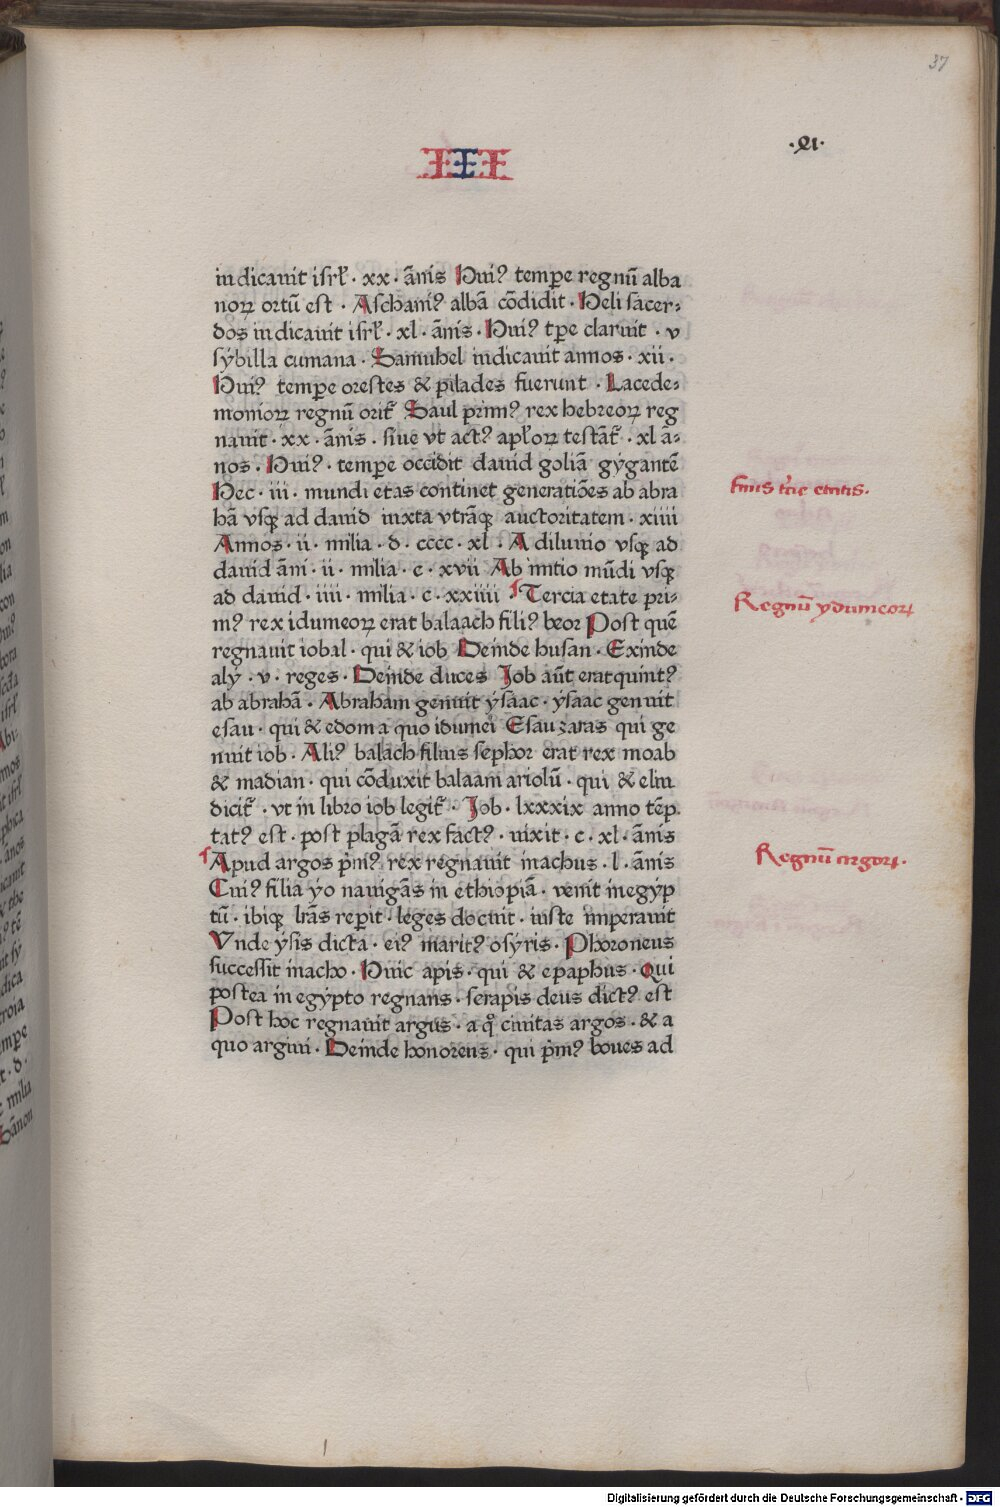 37
·XI·
III
iudicauit isrl̄ · xx · ānis Huiꝰ tempe regnū alba
noꝝ ortū est · Aschaniꝰ albā cōdidit · Heli sacer⸗
dos iudicauit isrl̄ · xl · ānis · Huiꝰ tꝑe claruit · v
sybilla cumana · Samuhel iudicauit annos · xii ·
Huiꝰ temꝑe orestes & pilades fuerunt · Lacede⸗
monioꝝ regnū orit̄ Saul primꝰ rex hebreoꝝ reg
nauit · xx · ānis · siue vt actꝰ apl̄oꝝ testāt̄ · xl ā⸗
nos · Huiꝰ · temꝑe occidit dauid goliā gygantē
Hec · iii · mundi etas continet generatiōes ab abra
hā vsqꝫ ad dauid iuxta vtrāqꝫ auctoritatem · xiiii
Annos · ii · milia · d · cccc · xl · A diluuio vsqꝫ ad
dauid āni · ii · milia · c · xvii Ab initio mūdi vsqꝫ
ad dauid · iiii · milia · c · xxiiii · Tercia etate pri⸗
mꝰ rex idumeoꝝ erat balaach filiꝰ beor Post quē
regnauit iobal · qui & iob Deinde husan · Exinde
aly · v · reges · Deinde duces Job aūt erat quintꝰ
ab abrahā · Abraham genuit ysaac · ysaac genuit
esau · qui & edom a quo idumei Esau zaras qui ge
nuit iob · Aliꝰ balach filius sephor erat rex moab
& madian · qui cōduxit balaam ariolū · qui & eliu
dicit̄ · vt in libro iob legit̄ · Job · lxxxix anno tēp
tatꝰ est · post plagā rex factꝰ · uixit · c · xl · ānis
Apud argos p̄mꝰ rex regnauit inachus · l · ānis
Cuiꝰ filia yo nauigās in ethiopiā · venit in egyp
tū · ibiqꝫ lrās reperit · leges docuit · iuste imperauit
Vnde ysis dicta · eiꝰ maritꝰ osyris · Phoroneus
successit inacho · Huic apis · qui & epaphus · Qui
postea in egypto regnans · serapis deus dictꝰ est
Post hoc regnauit argus · a qͦ ciuitas argos · & a
quo argiui · Deinde honoreus · qui p̄mꝰ boues ad
finis t̄cie etatis ·
Regnū ydumeoꝝ
Regnū argoꝝ ·
Digitalisierung gefördert durch die Deutsche Forschungsgemeinschaft - DFG